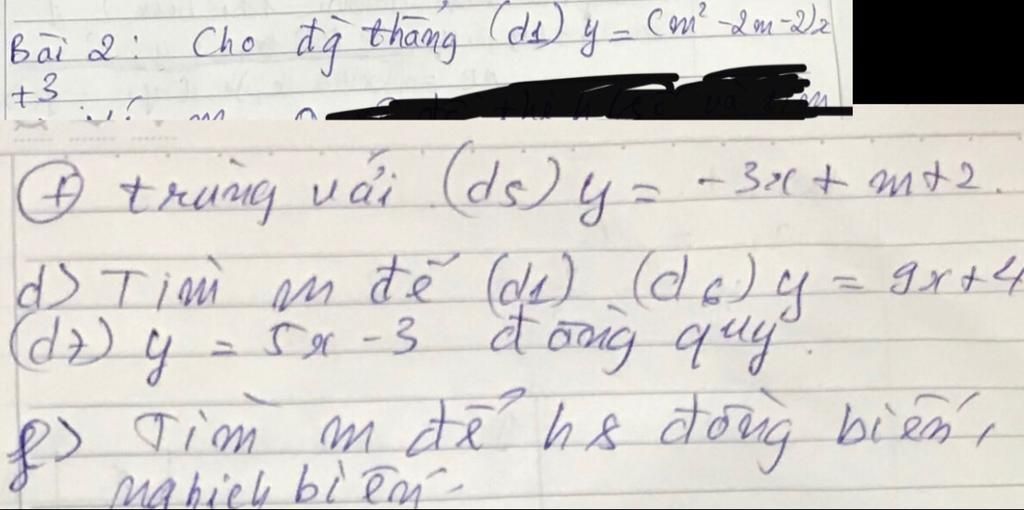 Bài 2: Cho đg thẳng (d1) y = (m² - 2m - 2)x
+3
⊕ trùng vải (d5) y = -3x + m+2.
d) Tìm m để (d1) (d6) y = 9x+4
(d7) y = 5x - 3 đồng quy.
f) Tìm m để hs đồng biến,
nghich biến.